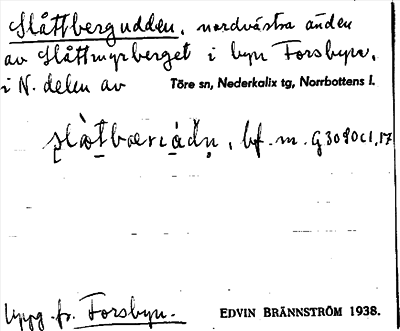 Slåttbergudden, nordvästra änden
av Slåttmyrberget i byn Forsbyn,
i N. delen av Töre sn, Nederkalix tg, Norrbottens l.
bf. m.
Uppg. fr. Forsbyn. EDVIN BRÄNNSTRÖM 1938.